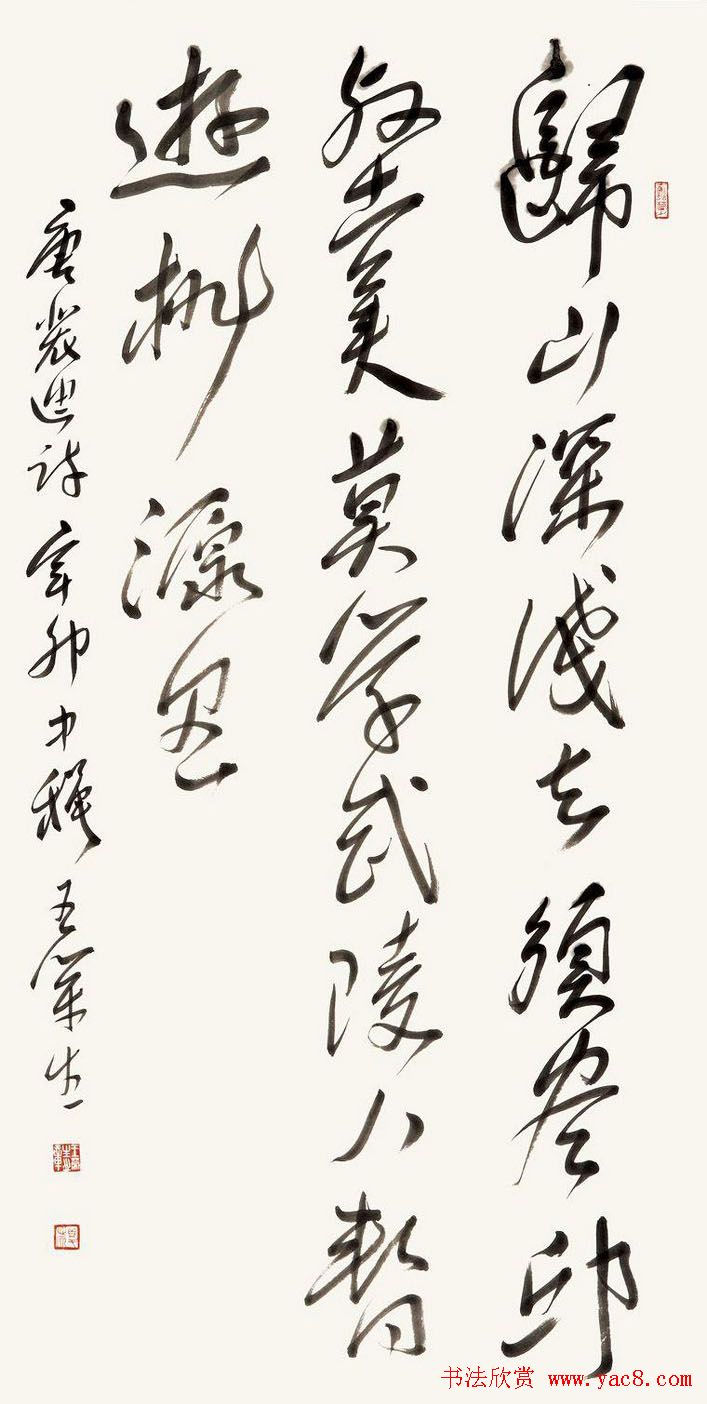 歸山深淺去須盡邱
壑美莫學武陵人暫
遊桃源裏
唐裴迪詩 辛卯中穐
书法欣赏 www.yac8.com